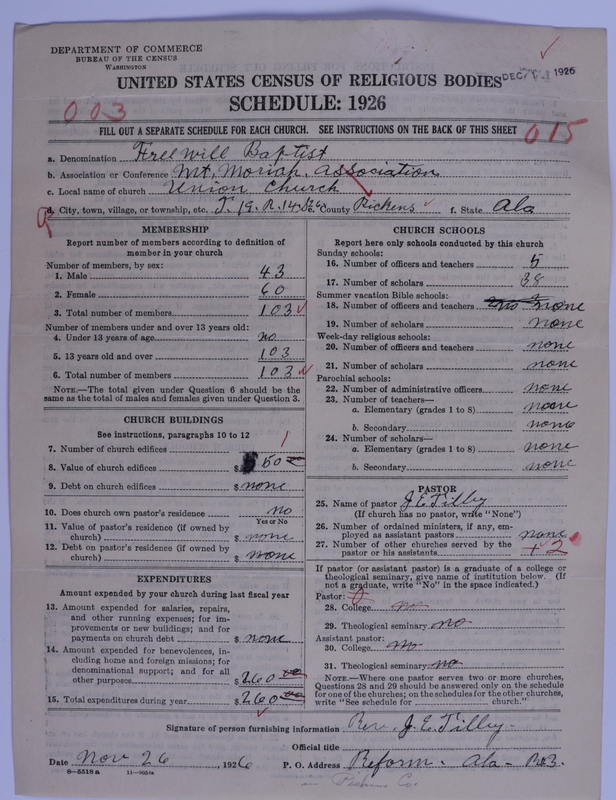 DEPARTMENT OF COMMERCE
BUREAU OF THE CENSUS
WASHINGTON
DEC 1926
UNITED STATES CENSUS OF RELIGIOUS BODIES
SCHEDULE: 1926
003
015
FILL OUT A SEPARATE SCHEDULE FOR EACH CHURCH. SEE INSTRUCTIONS ON THE BACK OF THIS SHEET
a. Denomination Free Will Baptist
b. Association or Conference Mt. Moriah Association
c. Local name of church Union Church
d. City, town, village, or township, etc. T. 19. R. 14. e. County Pickens f. State Ala
MEMBERSHIP
Report number of members according to definition of member in your church
Number of members, by sex:
1. Male 43
2. Female 60
3. Total number of members 103
Number of members under and over 13 years old:
4. Under 13 years of age no
5. 13 years old and over 103
6. Total number of members 103
NOTE.—The total given under Question 6 should be the same as the total of males and females given under Question 3.
CHURCH BUILDINGS
See instructions, paragraphs 10 to 12
7. Number of church edifices 1
8. Value of church edifices $ 50 00
9. Debt on church edifices $ none
10. Does church own pastor's residence? no
Yes or No
11. Value of pastor's residence (if owned by church) $ none
12. Debt on pastor's residence (if owned by church) $ none
EXPENDITURES
Amount expended by your church during last fiscal year
13. Amount expended for salaries, repairs, and other running expenses; for improvements or new buildings; and for payments on church debt $ none
14. Amount expended for benevolences, including home and foreign missions; for denominational support; and for all other purposes $ 260 00
15. Total expenditures during year $ 260 00
CHURCH SCHOOLS
Report here only schools conducted by this church
Sunday schools:
16. Number of officers and teachers 5
17. Number of scholars 38
Summer vacation Bible schools:
18. Number of officers and teachers no none
19. Number of scholars none
Week-day religious schools:
20. Number of officers and teachers none
21. Number of scholars none
Parochial schools:
22. Number of administrative officers none
23. Number of teachers—
a. Elementary (grades 1 to 8) none
b. Secondary none
24. Number of scholars—
a. Elementary (grades 1 to 8) none
b. Secondary none
PASTOR
25. Name of pastor J. E. Tilley
(If church has no pastor, write "None")
26. Number of ordained ministers, if any, employed as assistant pastors none
27. Number of other churches served by the pastor or his assistants + 2
If pastor (or assistant pastor) is a graduate of a college or theological seminary, give name of institution below. (If not a graduate, write "No" in the space indicated.)
Pastor: 0
28. College no
29. Theological seminary no
Assistant pastor:
30. College no
31. Theological seminary no
NOTE.—Where one pastor serves two or more churches, Questions 28 and 29 should be answered only on the schedule for one of the churches; on the schedules for the other churches, write "See schedule for church."
Signature of person furnishing information Rev. J. E. Tilley.
Official title
Date Nov 26, 1926 P. O. Address Reform. Ala - R#3.
8—5518 a
in Pickens Co.